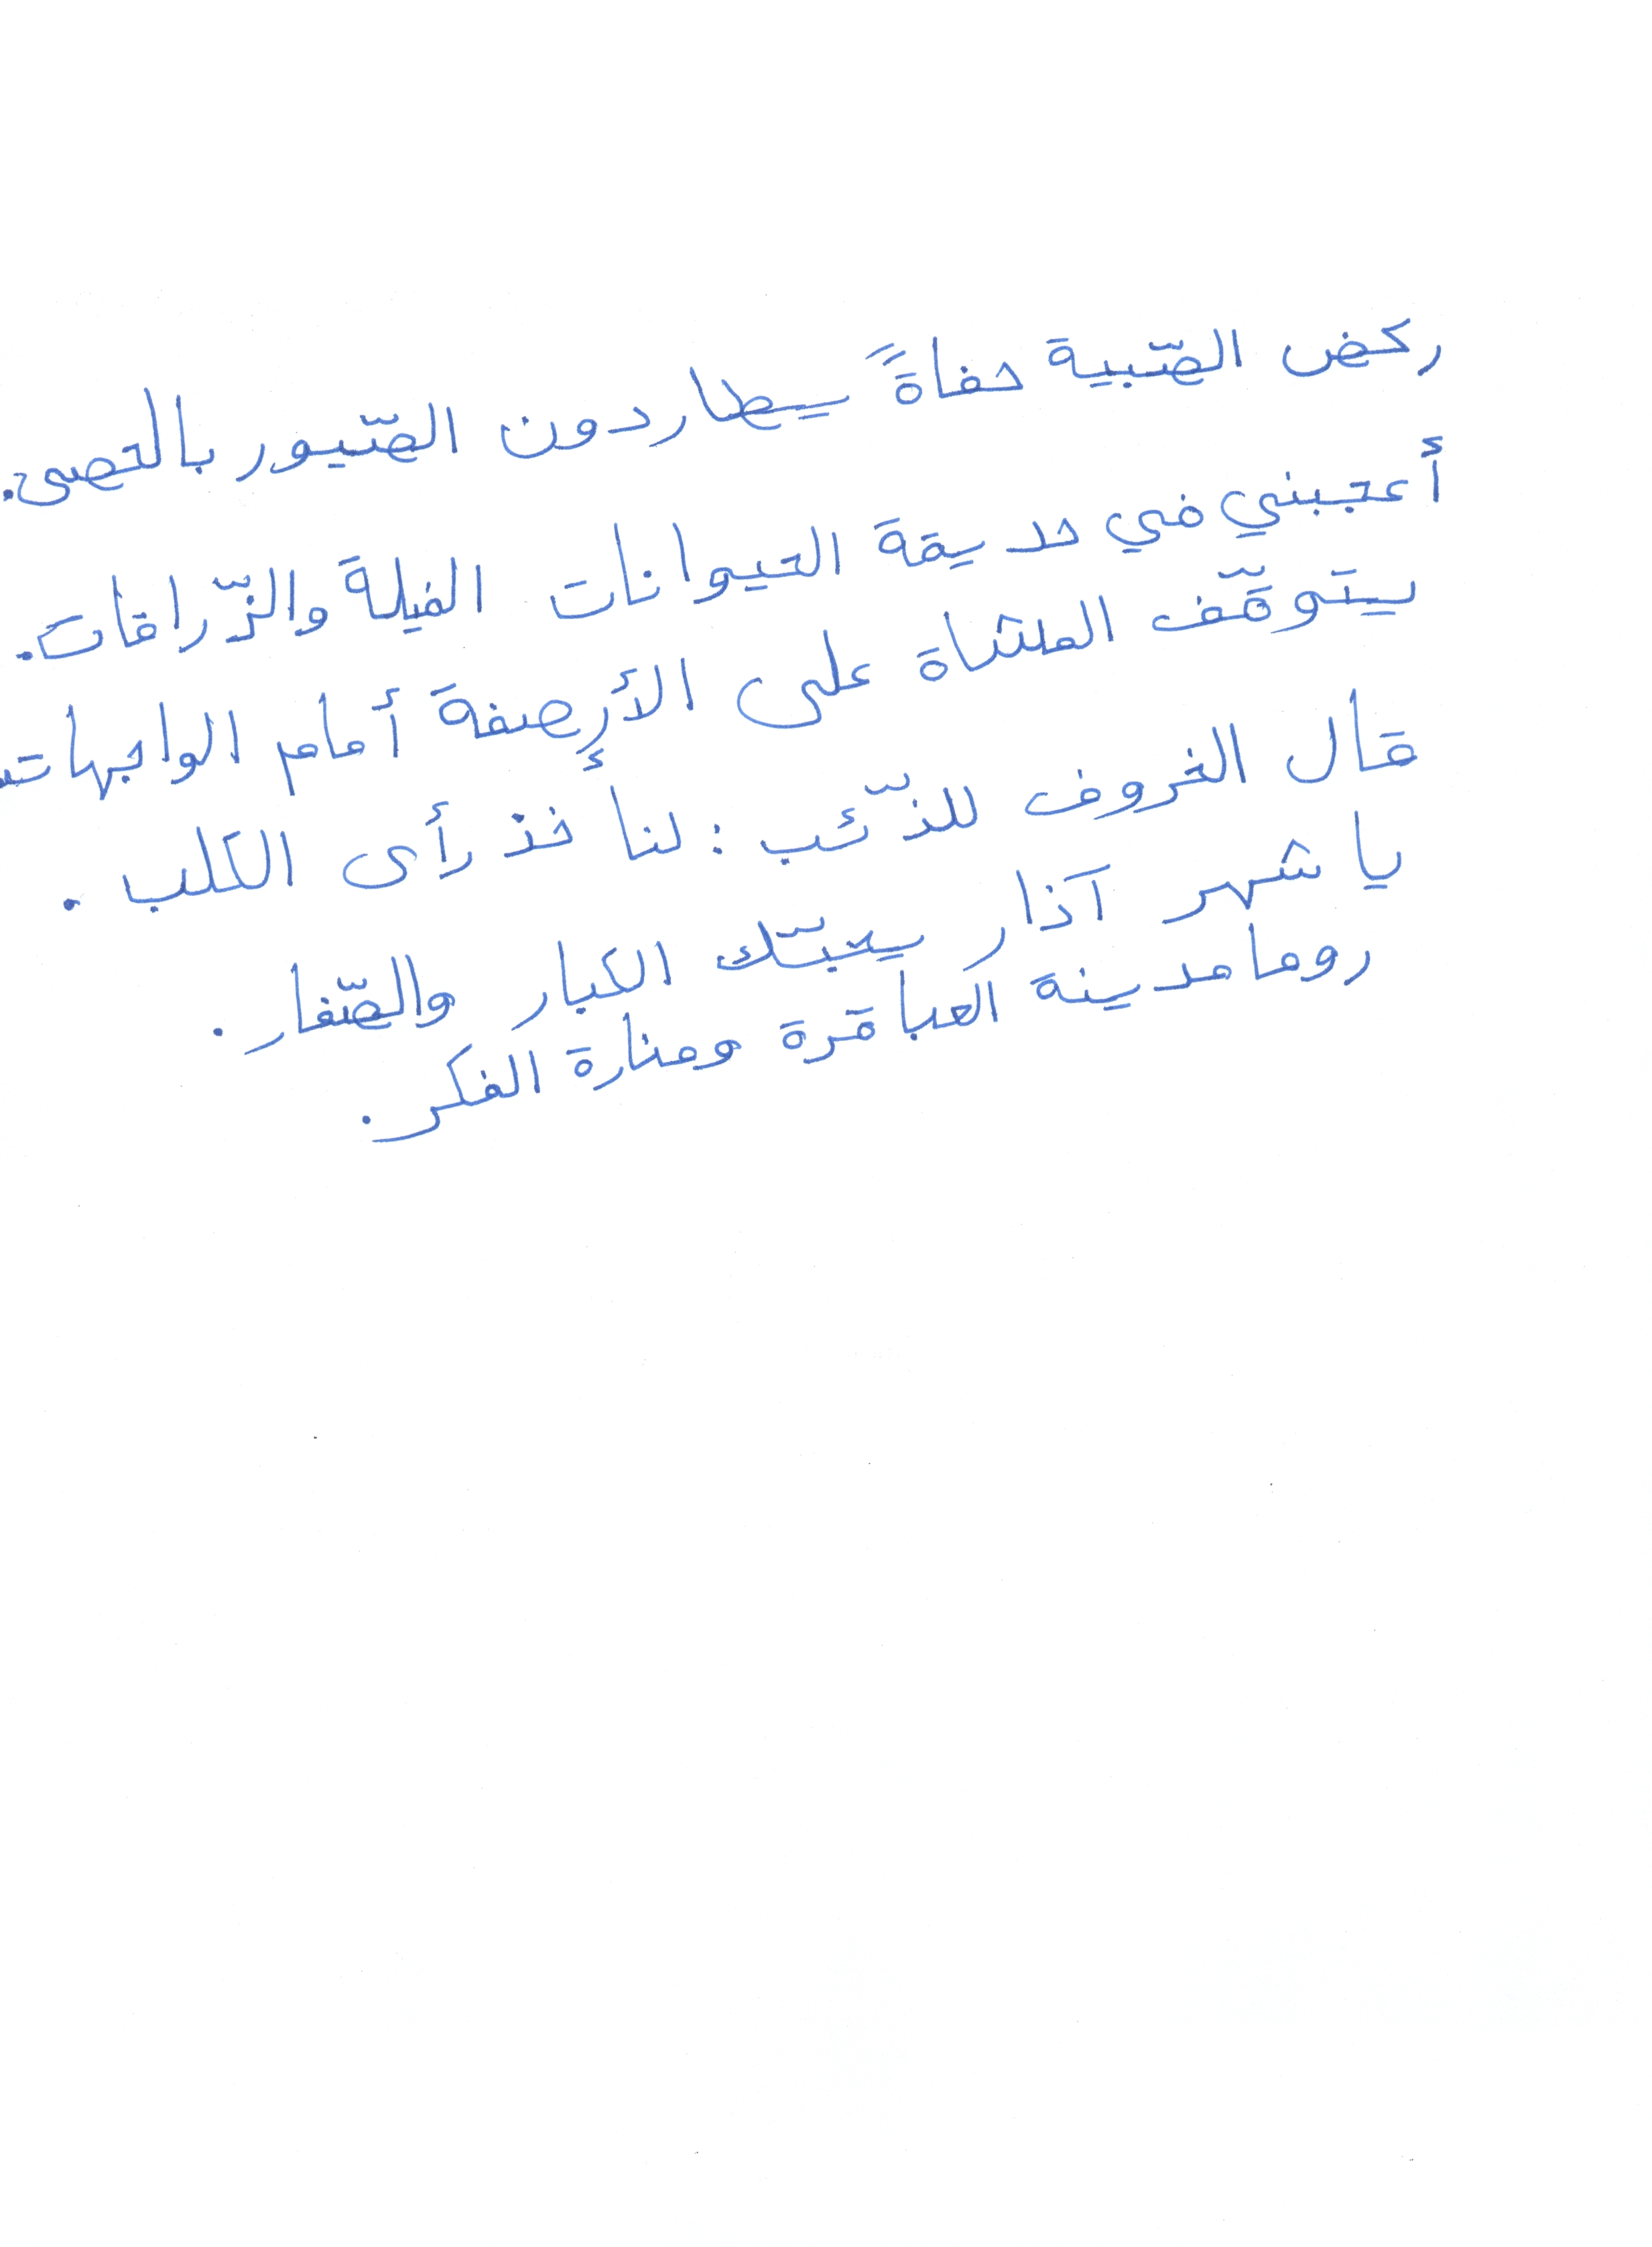 ركض الصّبية حفاةً يطاردون الصّيور بالحصى.
أعجبني في حديقة الحيوانات الفيلة والزّرافات.
يتوقّف المشاة على الأرصفة أمام الواجهات
قال الخروف للذّئب : لنأخذ رأي الكلب .
يا شهر آذار يحييّك الكبار والصّغار .
روما مدينة العباقرة ومنارة الفكر .